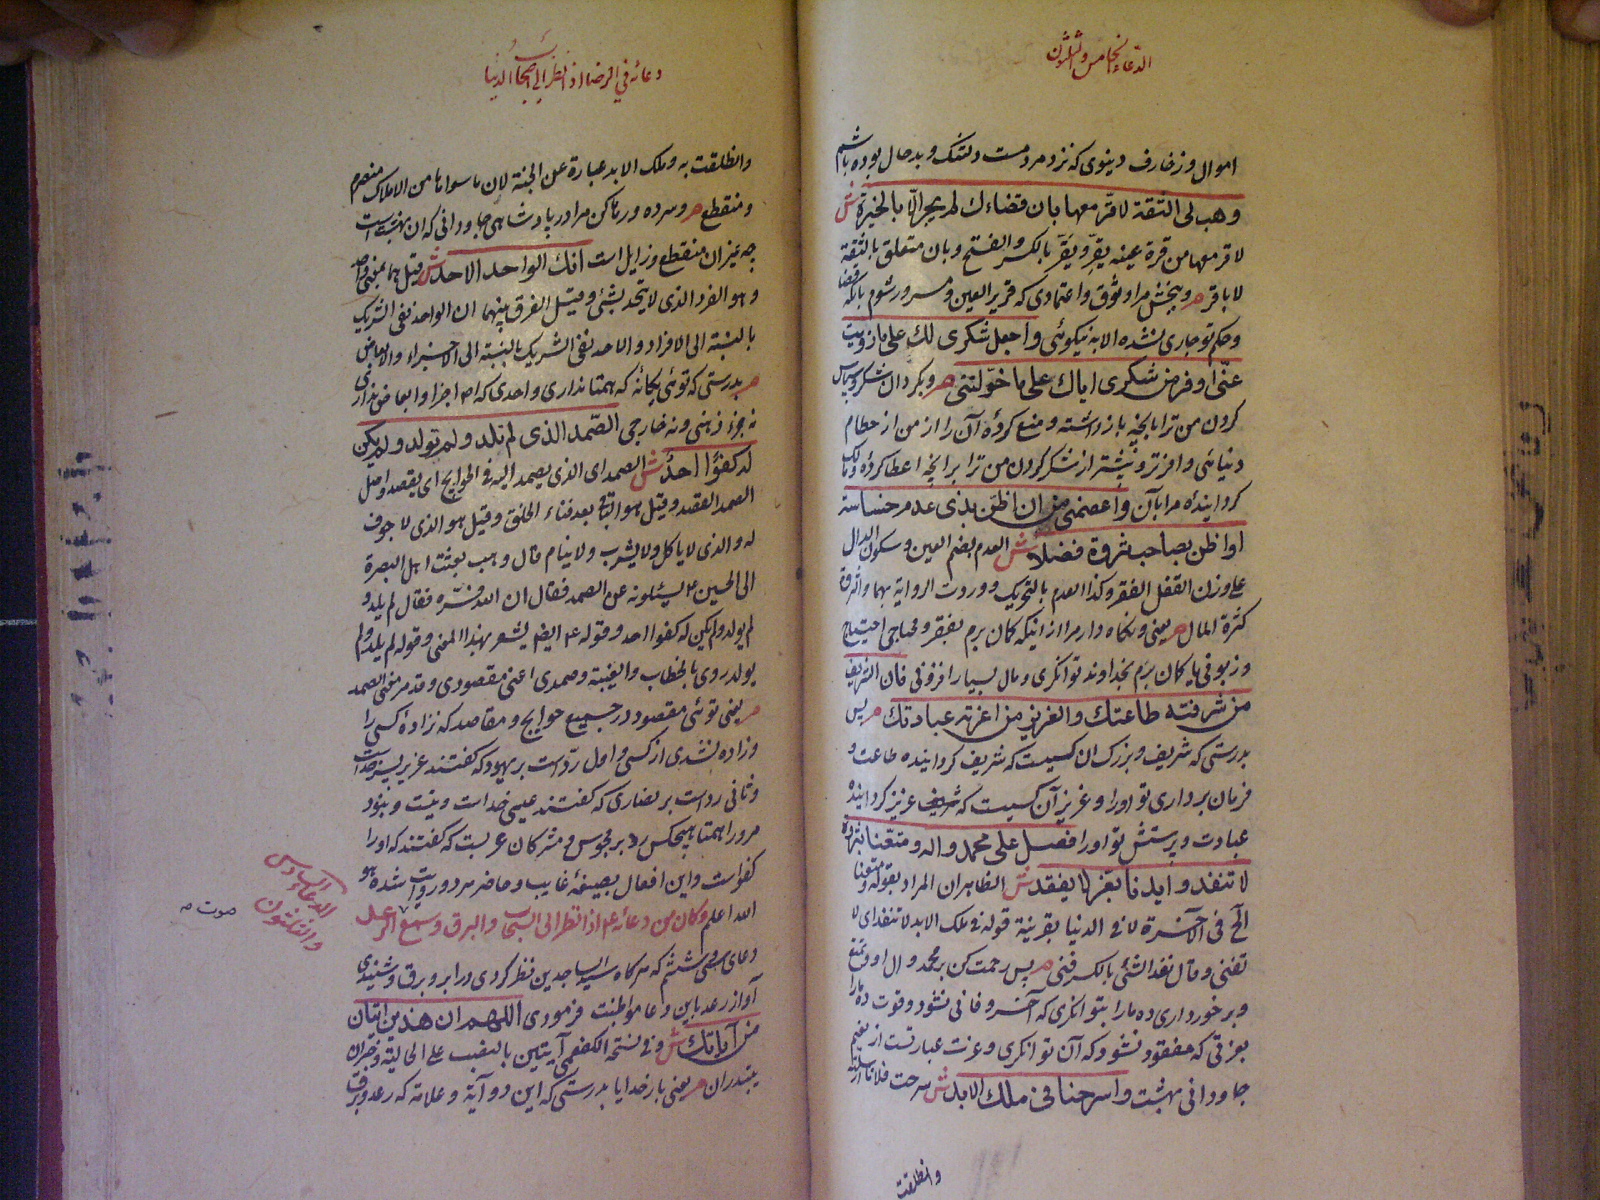 الدعاء الخامس والثلثون
اموال وزخارف دنیوی که نزد مردمست دلتنک وبد حال بوده باشم
وهب لی الثقة لاقر معها بان قضاءك لم یجر الا بالخیرة ش
لاقر معها من قرة عینه یقر ویقر بالکسر والفتح وبان متعلق بالثقة
لا باقر م وببخش مرا وثوق واعتمادی که قریر العین ومسرور شوم بانکه قضا
وحکم تو جاری نشده الا به نیکوئی واجعل شکری لك علی ما زویت
عنی اوفر من شکری ایاك علی ما خولتنی م وبکردان شکر وسپاس
کردن من ترا بانچه بازداشته ومنع کرده آن را از من از حطام
دنیائی وافزتر وبیشتر از شکر کردن من ترا برانچه اعطا کرده ومالک
کردانیده مرا بآن واعصمنی من ان اظن بذی عدم خساسة
او اظن بصاحب ثروة فضلا ش العدم بضم العین وسکون الدال
علی وزن القفل الفقر وکذا العدم بالتحریک ووردت الروایة بهما والثروة
کثرة المال م یعنی ونکاه دار مرا ازانیکه کان برم بفقر ومحتاجی احتیاج
وزبونی یا کان برم بخداوند توانکری ومال بسیار افزونی فان الشریف
من شرفته طاعتك والعزیز من اعزته عبادتك م پس
بدرستی که شریف وبزرک ان کسیست که شریف کردانیده طاعت و
فرمان برداری تو اورا وعزیز آن کسیت که شریف عزیز کردانیده
عبادت وپرستش تو اورا فصل علی محمد واله ومتعنا بثروة
لا تنفد وایدنا بعز لا یفقد ش الظاهر ان المراد بقوله ومتعنا
الخ فی الآخرة لا فی الدنیا بقرینة قوله فی ملک الابد لا تنفد ای لا
تفنی وقال نفد الشئ بالکسر فنی م پس رحمت کن بر محمد وال او وتمتع
وبرخورداری ده مارا بتوانکری که آخر وفانی نشود وقوت ده مارا
بعزتی که مفقود نشود که آن توانکری وعزت عبارتست از نعیم
جاودانی بهشت واسرحنا فی ملك الابد ش سرحت فلانا ارسلته
وانطلقت
دعائه فی الرضا اذا نظر الی اصحاب الدنیا
وانطلقت به وملک الابد عبارة عن الجنة لان ما سواها من الاملاک منصرم
ومنقطع م وسرده ورها کن مرا در پادشاهی جاودانی که ان بهشتست
چه غیر ان منقطع وزایل است انك الواحد الاحد ش قیل هما بمعنی واحد
وهو الفرد الذی لا یتحد بشئ وقیل الفرق بینهما ان الواحد نفی الشریک
بالنسبة الی الافراد والاحد نفی الشریک بالنسبة الی الاجزاء والابعاض
م بدرستی که توئی یکانه که همتا نداری واحدی که اجزا وابعاض نداری
نه جزء ذهنی ونه خارجی الصمد الذی لم تلد ولم تولد ولم یکن
لك کفوا احد ش الصمد ای الذی یصمد الیه فی الحوایج ای یقصد واصل
الصمد القصد وقیل هو الباقی بعد فناء الخلق وقیل هو الذی لا جوف
له والذی لا یاکل ولا یشرب ولا ینام قال وهب بعثت اهل البصرة
الی الحسین ع یسئلونه عن الصمد فقال ان الله فسره فقال لم یلد و
لم یولد ولم یکن له کفوا احد وقوله ع ایضا یشعر بهذا المعنی وقوله لم یلد ولم
یولد روی بالخطاب والغیبة وصمدی اعنی مقصودی وقد مر معنی الصمد
م یعنی توئی مقصود در جمیع حوایج ومقاصد که نزادهٔ کسی را
وزاده نشدی از کسی واول رداست بر یهود که کفتند عزیر پسر خداست
وثانی رداست بر نصاری که کفتند عیسی خداست ونیست ونبود
مر ورا همتا هیچکس رد بر مجوس ومشرکان عربست که کفتند که اورا
کفواست واین افعال بصیغهٔ غایب وحاضر هر دو روایت شده هو
الله اعلم وکان من دعائه ع اذا نظر الی السحاب والبرق وسمع الرعد
دعای سی وششم که هر کاه سید الساجدین نظر کردی در ابر وبرق وشنیدی
آواز رعد باین دعا مواظبت فرمودی اللهم ان هذین ایتان
من آیاتك ش وفی نسخة الکفعمی آیتین بالنصب علی الحالیة وخبر ان
یبتدران م یعنی بار خدایا بدرستی که این دو آیة وعلامة که رعد وبرق
الدعاء السادس
والثلثون
صوت م